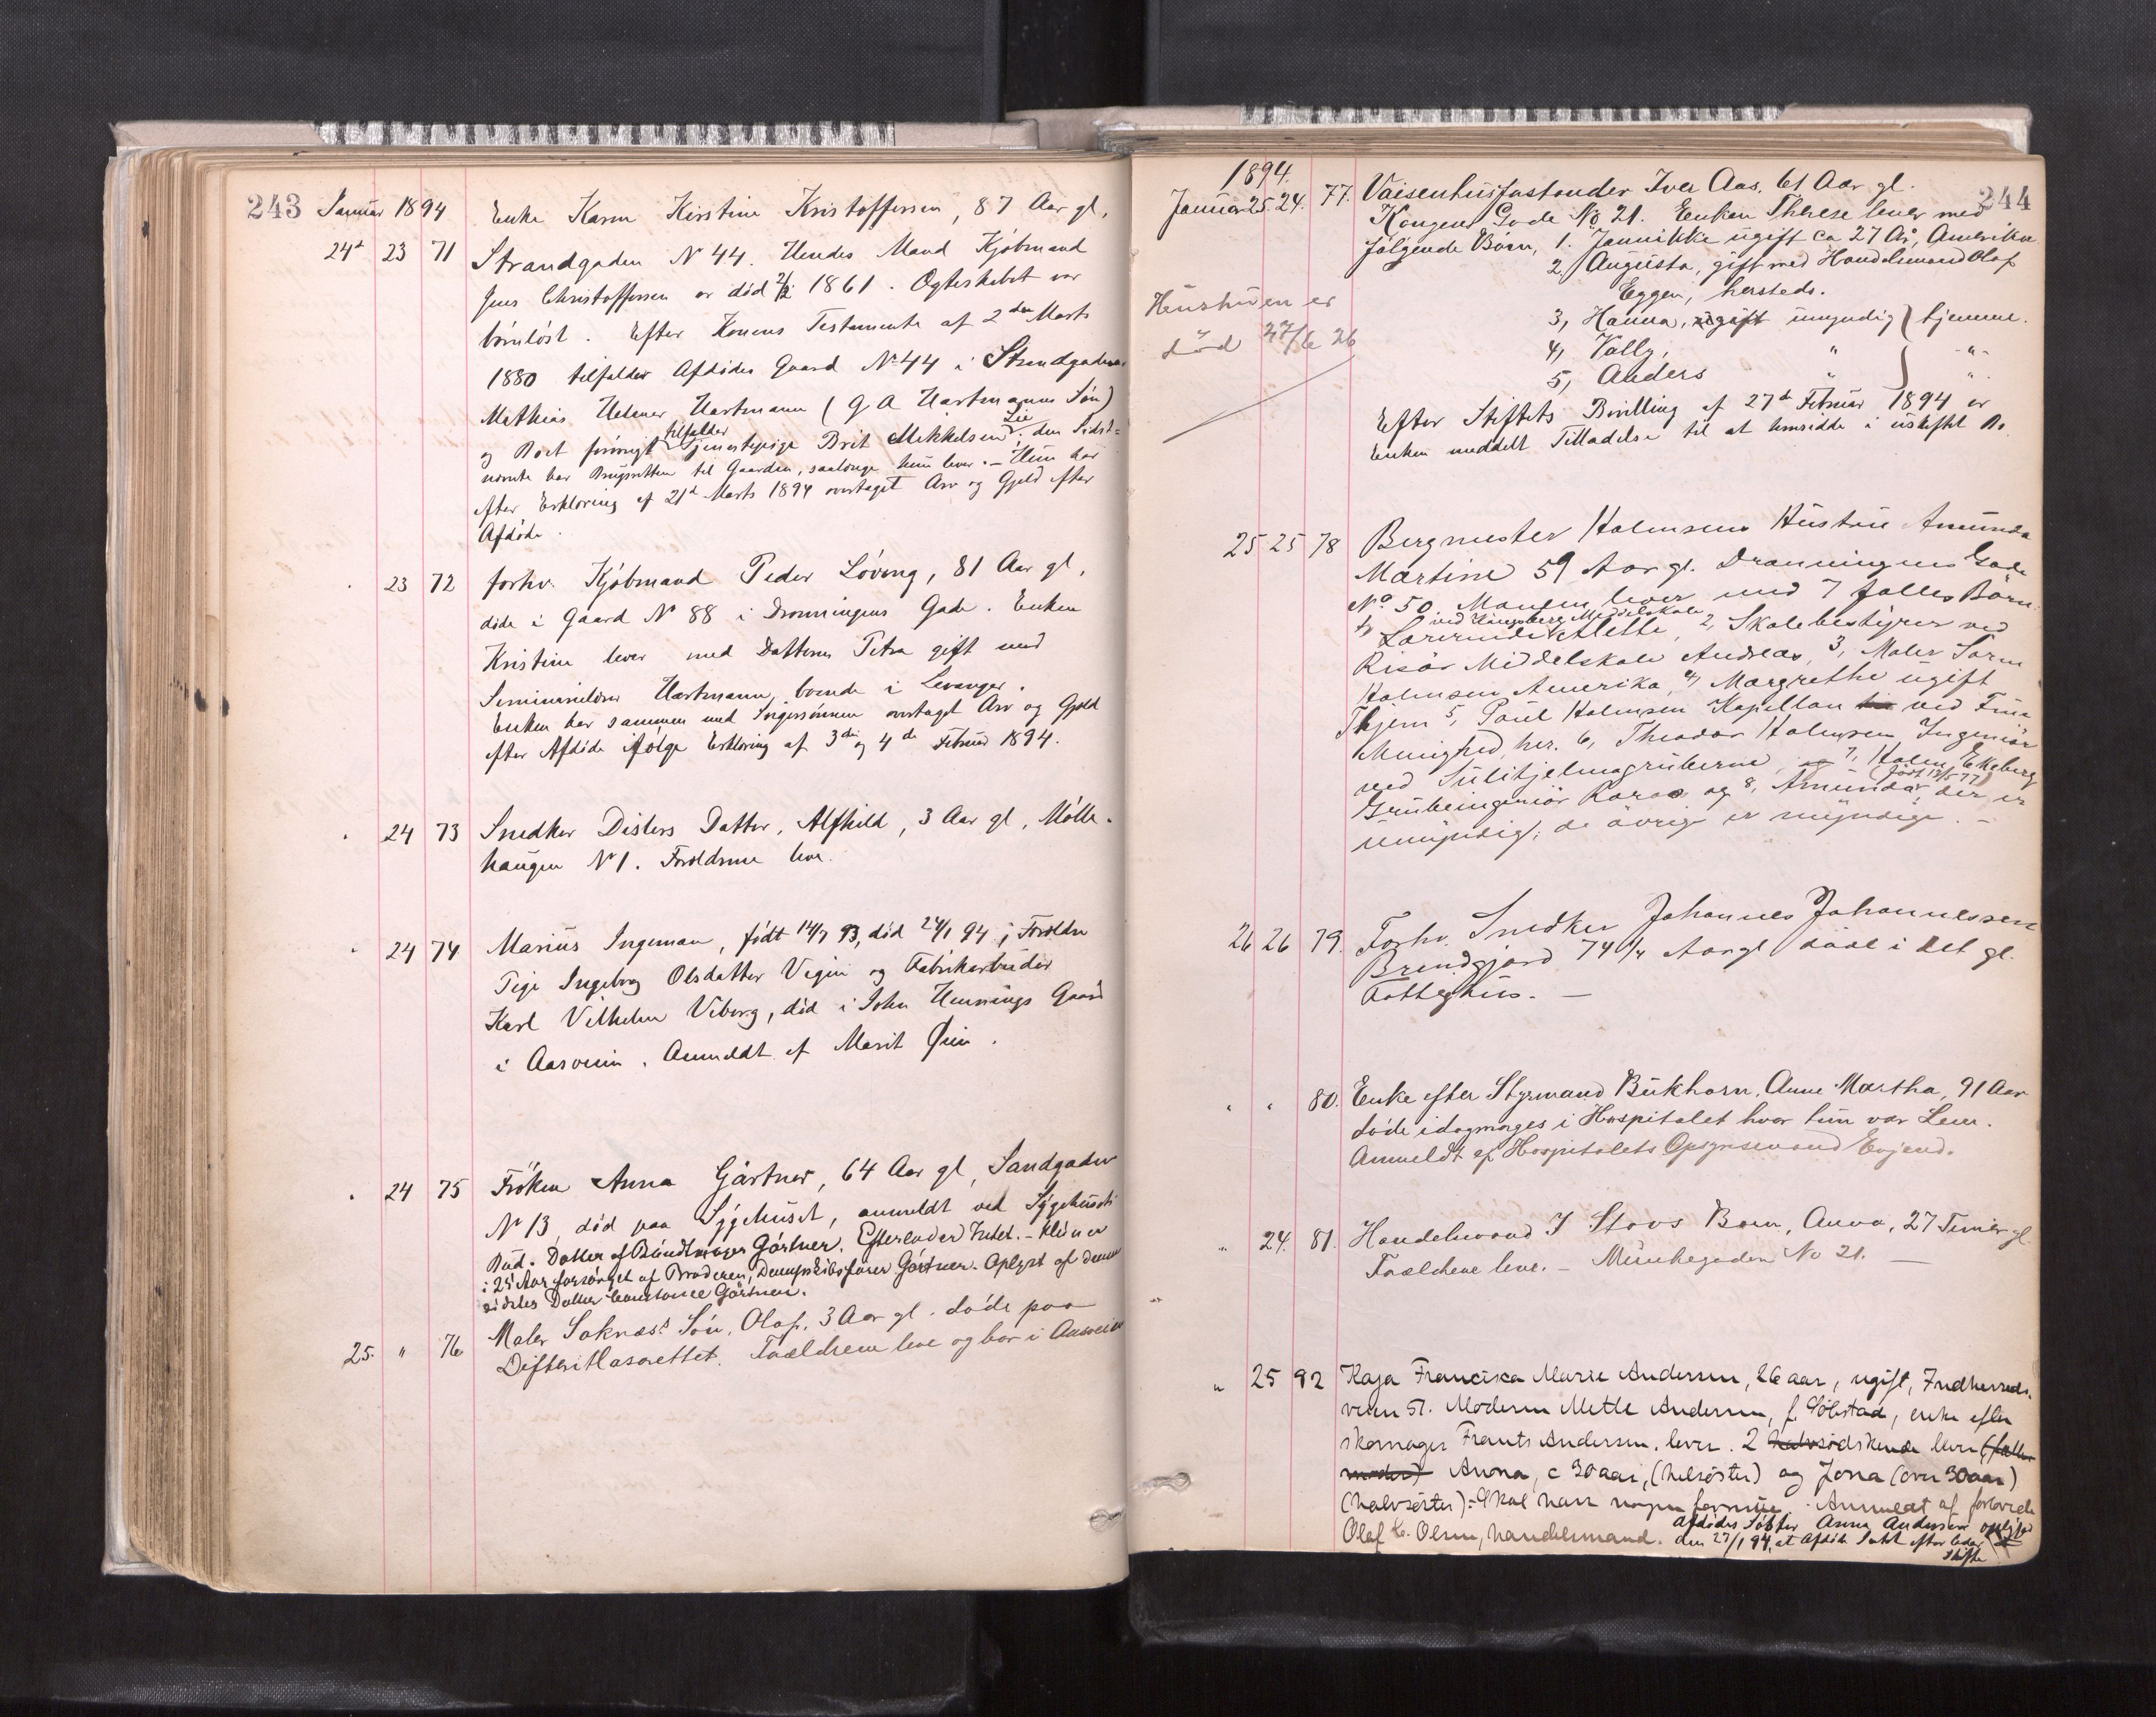 243 Januar 1894 Enke Karen Kirstine Kristoffersen, 87 Aar gl,
24d 23 71 Strandgaden No 44. Hendes Mand Kjøbmand
Jens Christoffersen er död 1861. Egteskabet var
börnlöst. Efter Konens Testamente af 2den Marts
1880 tilfalder Afdödes Gaard No 44 i Strandgaden
Mathias Helmer Hartmann (G A Hartmanns Sön)
og Boet forövrigt tilfalder Tjenestepige Brit Mikkelsen Lie; den Sidst-
nævnte har Brugsretten til Gaarden, saalænge hun lever. – Hun har
efter Erklæring af 21d Marts 1894 overtaget Arv og Gjeld efter
Afdöde.
" 23 72 forhv. Kjöbmand Peder Löving, 81 Aar gl,
döde i Gaard No 88 i Dronningens Gade. Enken
Kristine lever med Datteren Petra gift med
Seminarielærer Hartmann, boende i Levanger.
Enken har sammen med Svigersönnen overtaget Arv og Gjeld
efter Afdöde ifølge Erklæring af 3die og 4de Februar 1894.
" 24 73 Snedker Disters Datter, Alfhild, 3 Aar gl, Mölle-
haugen No 1. Forældrene leve.
" 24 74 Marius Ingeman, födt 14/7 93, död 24/1 94; Forældre
Pige Ingeborg Olsdatter Vigen og Fabrikarbeider
Karl Vilhelm Viborg, död i John Hennings Gaard
i Aasveien. Anmeldt af Marit Øien.
" 24 75 Fröken Anna Gärtner, 64 Aar gl, Sandgaden
No 13, död paa Sygehuset, anmeldt ved Sygehusets
Bud. Datter af Bundtmager Gärtner. Efterlader Intet. – Hun er
i 25 Aar forsörget af Broderen, Dampskibsfører Gärtner. Oplyst af denne
sidstes Datter Constance Gärtner.
25. " 76 Maler Soknæs's Sön, Olaf, 3 Aar gl. döde paa
Difteritlasarettet. Forældrene leve og bor i Aasveien
1894. 244
Januar 25. 24. 77. Vaisenhusforstander Iver Aas. 61 Aar gl.
Kongens Gade No 21. Enken Therese lever med
følgende Börn, 1. Jannikke ugift ca 27 Ar, Amerika
2, Augusta, gift med Handelsmand Olaf
Eggen, hersteds.
3, Hanna, ugift umyndig hjemme.
4, Vally, " -"-
5, Anders " "
Hustruen er
död 27/6 26
Efter Stiftets Bevilling af 27de Februar 1894 er
Enken meddelt Tilladelse til at hensidde i uskiftet Bo.
25 25 78 Bergmester Holmsens Hustru Amunda
Martine 59 Aar gl. Dronningens Gade
No 50. Manden lever med 7 fælles Börn:
1, Lærerinde ved Kongsberg Middelskole Alette, 2, Skolebestyrer ved
Risör Middelskole Andreas, 3, Maler Sören
Holmsen Amerika, 4, Margrethe ugift
Thjem 5, Poul Holmsen Kapellan ved Frue
Menighed her. 6, Theodor Holmsen Ingeniör
ved Sulitjelmagruberne, 7, Holm Ekeberg
Grubeingeniör Røros og 8, Amunda (født 13/5 77), der er
umyndig; de övrige er myndige. –
26 26 79. Forhv. Snedker Johannes Johannessen
Brendgjord 74 1/4 Aar gl døde i det gl.
Fattighus. –
" " 80. Enke efter Styrmand Bukhorn, Anne Martha, 91 Aar
döde idagmorges i Hospitalet hvor hun var Lem.
Anmeldt af Hospitalets Opsynsmand Evjend.
" 24. 81. Handelsmand I Stavs Barn, Anna, 27 Timer gl.
Forældrene leve. – Munkegaden No 21. –
" 25 92 Kaja Francisca Marie Andersen, 26 aar, ugift, Indherreds-
veien 51. Moderen Mette Andersen, f. Söbstad, enke efter
skomager Frants Andersen, lever. 2 halvsödskende lever (fælles
moder) Anna, c 30 aar, (helsöster) og Jona (over 30 aar)
(halvsöster) – Skal have nogen formue. Anmeldt af forlovede
Olaf Olsen, handelsmand. Afdödes Söster Anna Andersen oplyser
den 27/1 94, at Afdöde Intet efterlader
skifte